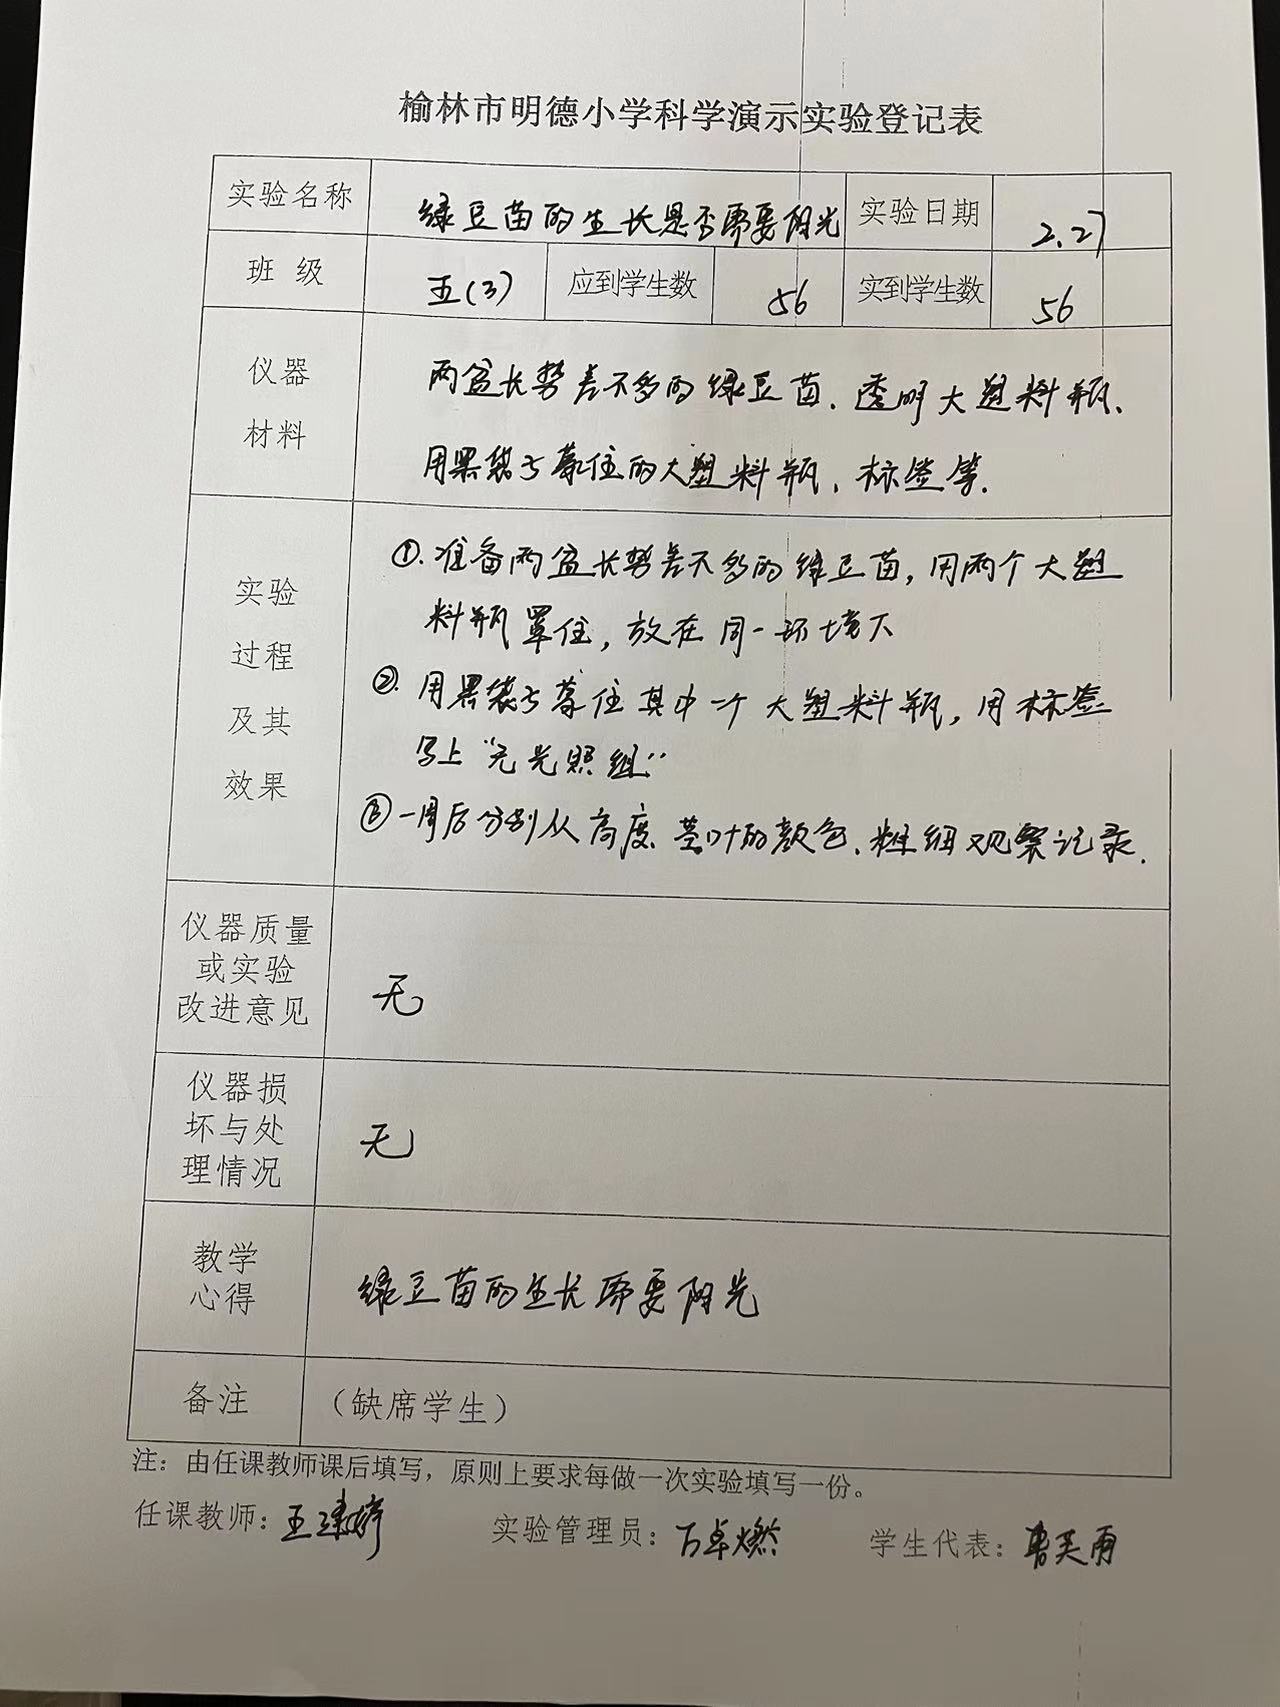 榆林市明德小学科学演示实验登记表
实验名称 绿豆苗的生长是否需要阳光 实验日期 2.27
班 级 五(3) 应到学生数 56 实到学生数 56
仪器
材料
两盆长势差不多的绿豆苗、透明大塑料瓶、
用黑袋子蒙住的大塑料瓶、标签等.
实验
过程
及其
效果
①.准备两盆长势差不多的绿豆苗,用两个大塑
料瓶罩住,放在同一环境下
②.用黑袋子蒙住其中一个大塑料瓶,用标签
写上“无光照组”
③一周后分别从高度、茎叶的颜色、粗细观察记录.
仪器质量
或实验
改进意见
无
仪器损
坏与处
理情况
无
教学
心得
绿豆苗的生长需要阳光
备注 (缺席学生)
注:由任课教师课后填写,原则上要求每做一次实验填写一份。
任课教师:王 婷 实验管理员:万卓燃 学生代表:曹芙雨